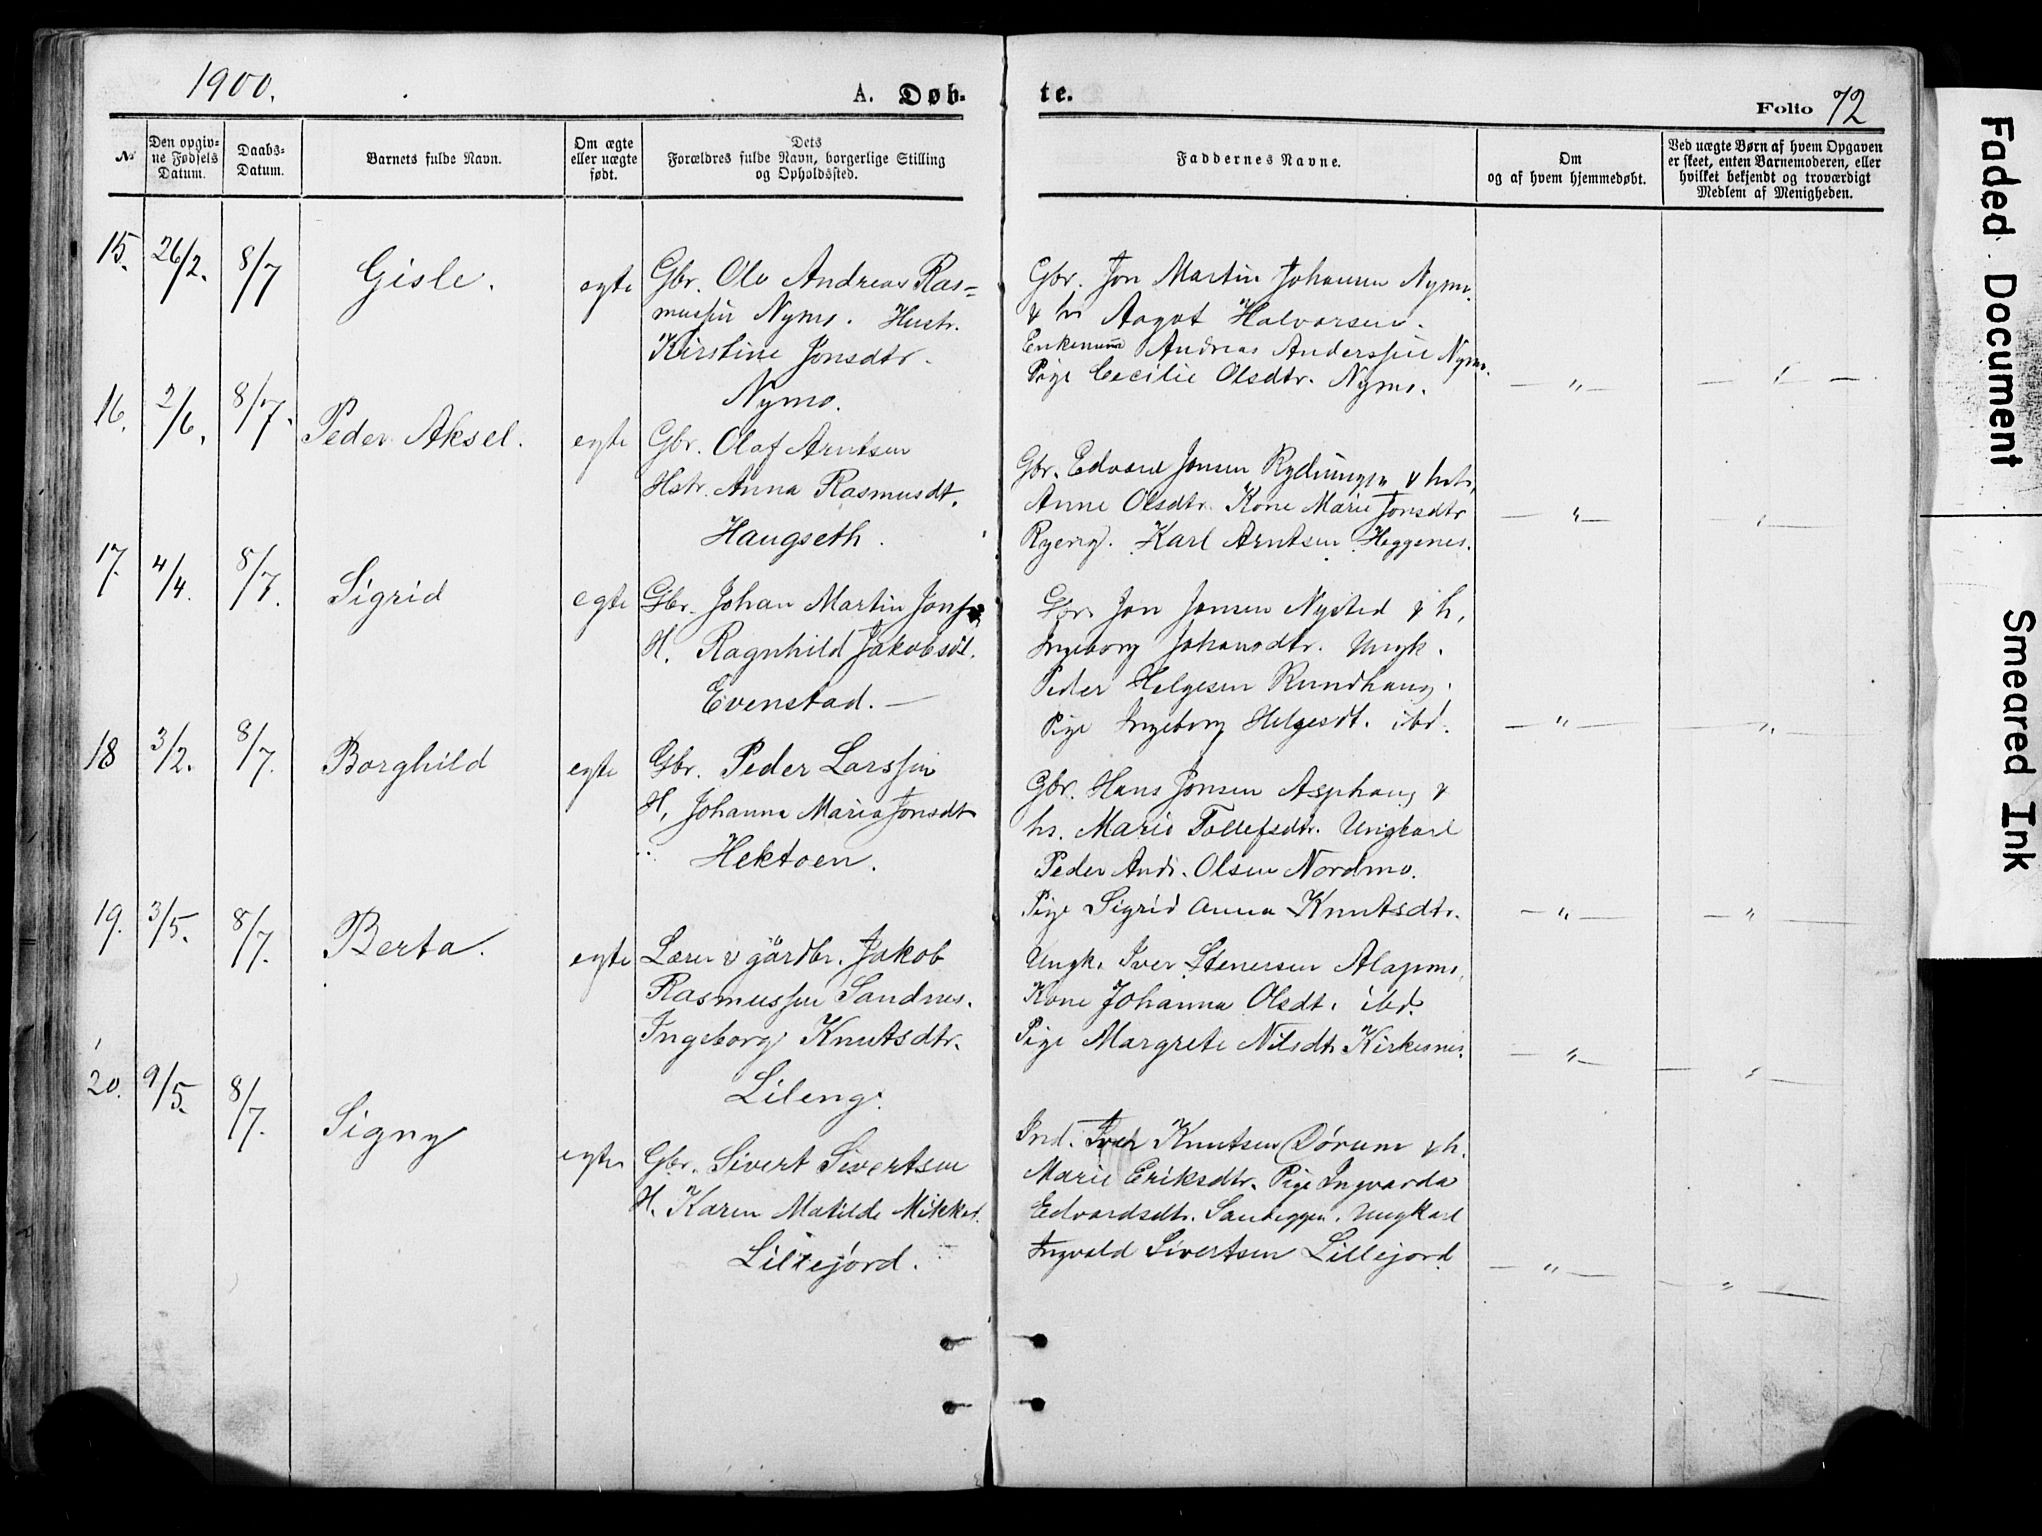 1900.
A. Døb-
te.
Folio 72
№
Den opgiv-
ne Fødsels
Datum.
Daabs-
Datum.
Barnets fulde Navn.
Om ægte
eller uægte
født.
Dets
Forældres fulde Navn, borgerlige Stilling
og Opholdssted.
Faddernes Navne.
Om
og af hvem hjemmedøbt.
Ved uægte Børn af hvem Opgaven
er skeet, enten Barnemoderen, eller
hvilket bekjendt og troværdigt
Medlem af Menigheden.
15. 26/2. 8/7 Gisle. egte
Gbr. Ole Andreas Ras=
mussen Nymo. Hustr.
Kirstine Jonsdtr.
Nymo.
Gbr. Jon Martin Johansen Nymo.
& hs Aagot Halvorsen.
Enkemand Andreas Anderssen Nymo.
Pige Cecilie Olsdtr. Nymo. — " — — " —
16. 2/6. 8/7. Peder Aksel. egte
Gbr. Olaf Arntsen
Hstr. Anna Rasmusdt.
Haugseth.
Gbr. Edvard Jonsen &
Anne Olsdtr. Kone Marie Jonsdtr
Karl Arntsen Heggenes. — " — — " —
17. 4/4. 8/7. Sigrid egte
Gbr. Johan Martin
H. Ragnhild Jakobsdt.
Evenstad. —
Gbr. Jon Jonsen Nysted & h.
Ingeborg Johansdtr. Ungk.
Peder Helgesen Rundhaug.
Pige Ingeborg Helgesdt. ibd. — " — — " —
18 3/2. 8/7. Borghild egte
Gbr. Peder Larssen
H. Johanna Maria Jonsdt
Hektoen.
Gbr. Hans Jonsen Asphaug &
hs. Marie Tollefsdtr. Ungkarl
Peder Andr. Olsen Nordmo.
Pige Sigrid Anna Knutsdtr. — " — — " —
19. 3/5. 8/7. Berta. egte
Lærer & gårdbr. Jakob
Rasmussen Sandnes.
Ingeborg Knutsdtr.
Lileng.
Ungk. Iver Stenersen Alapmo.
Kone Johanna Olsdt. ibd.
Pige Margrete Nilsdtr Kirkesnes. — " — — " —
20. 9/5. 8/7. Signy egte
Gbr. Sivert Sivertsen
H. Karen Matilde Mikkel.
Lillejord.
Ind. Iver Knutsen Dørum & h.
Marie Eriksdtr. Pige Ingvarda
Edvardsdtr. Ungkarl
Ingvald Sivertsen Lillejord — " — — " —
Faded Document
Smeared Ink